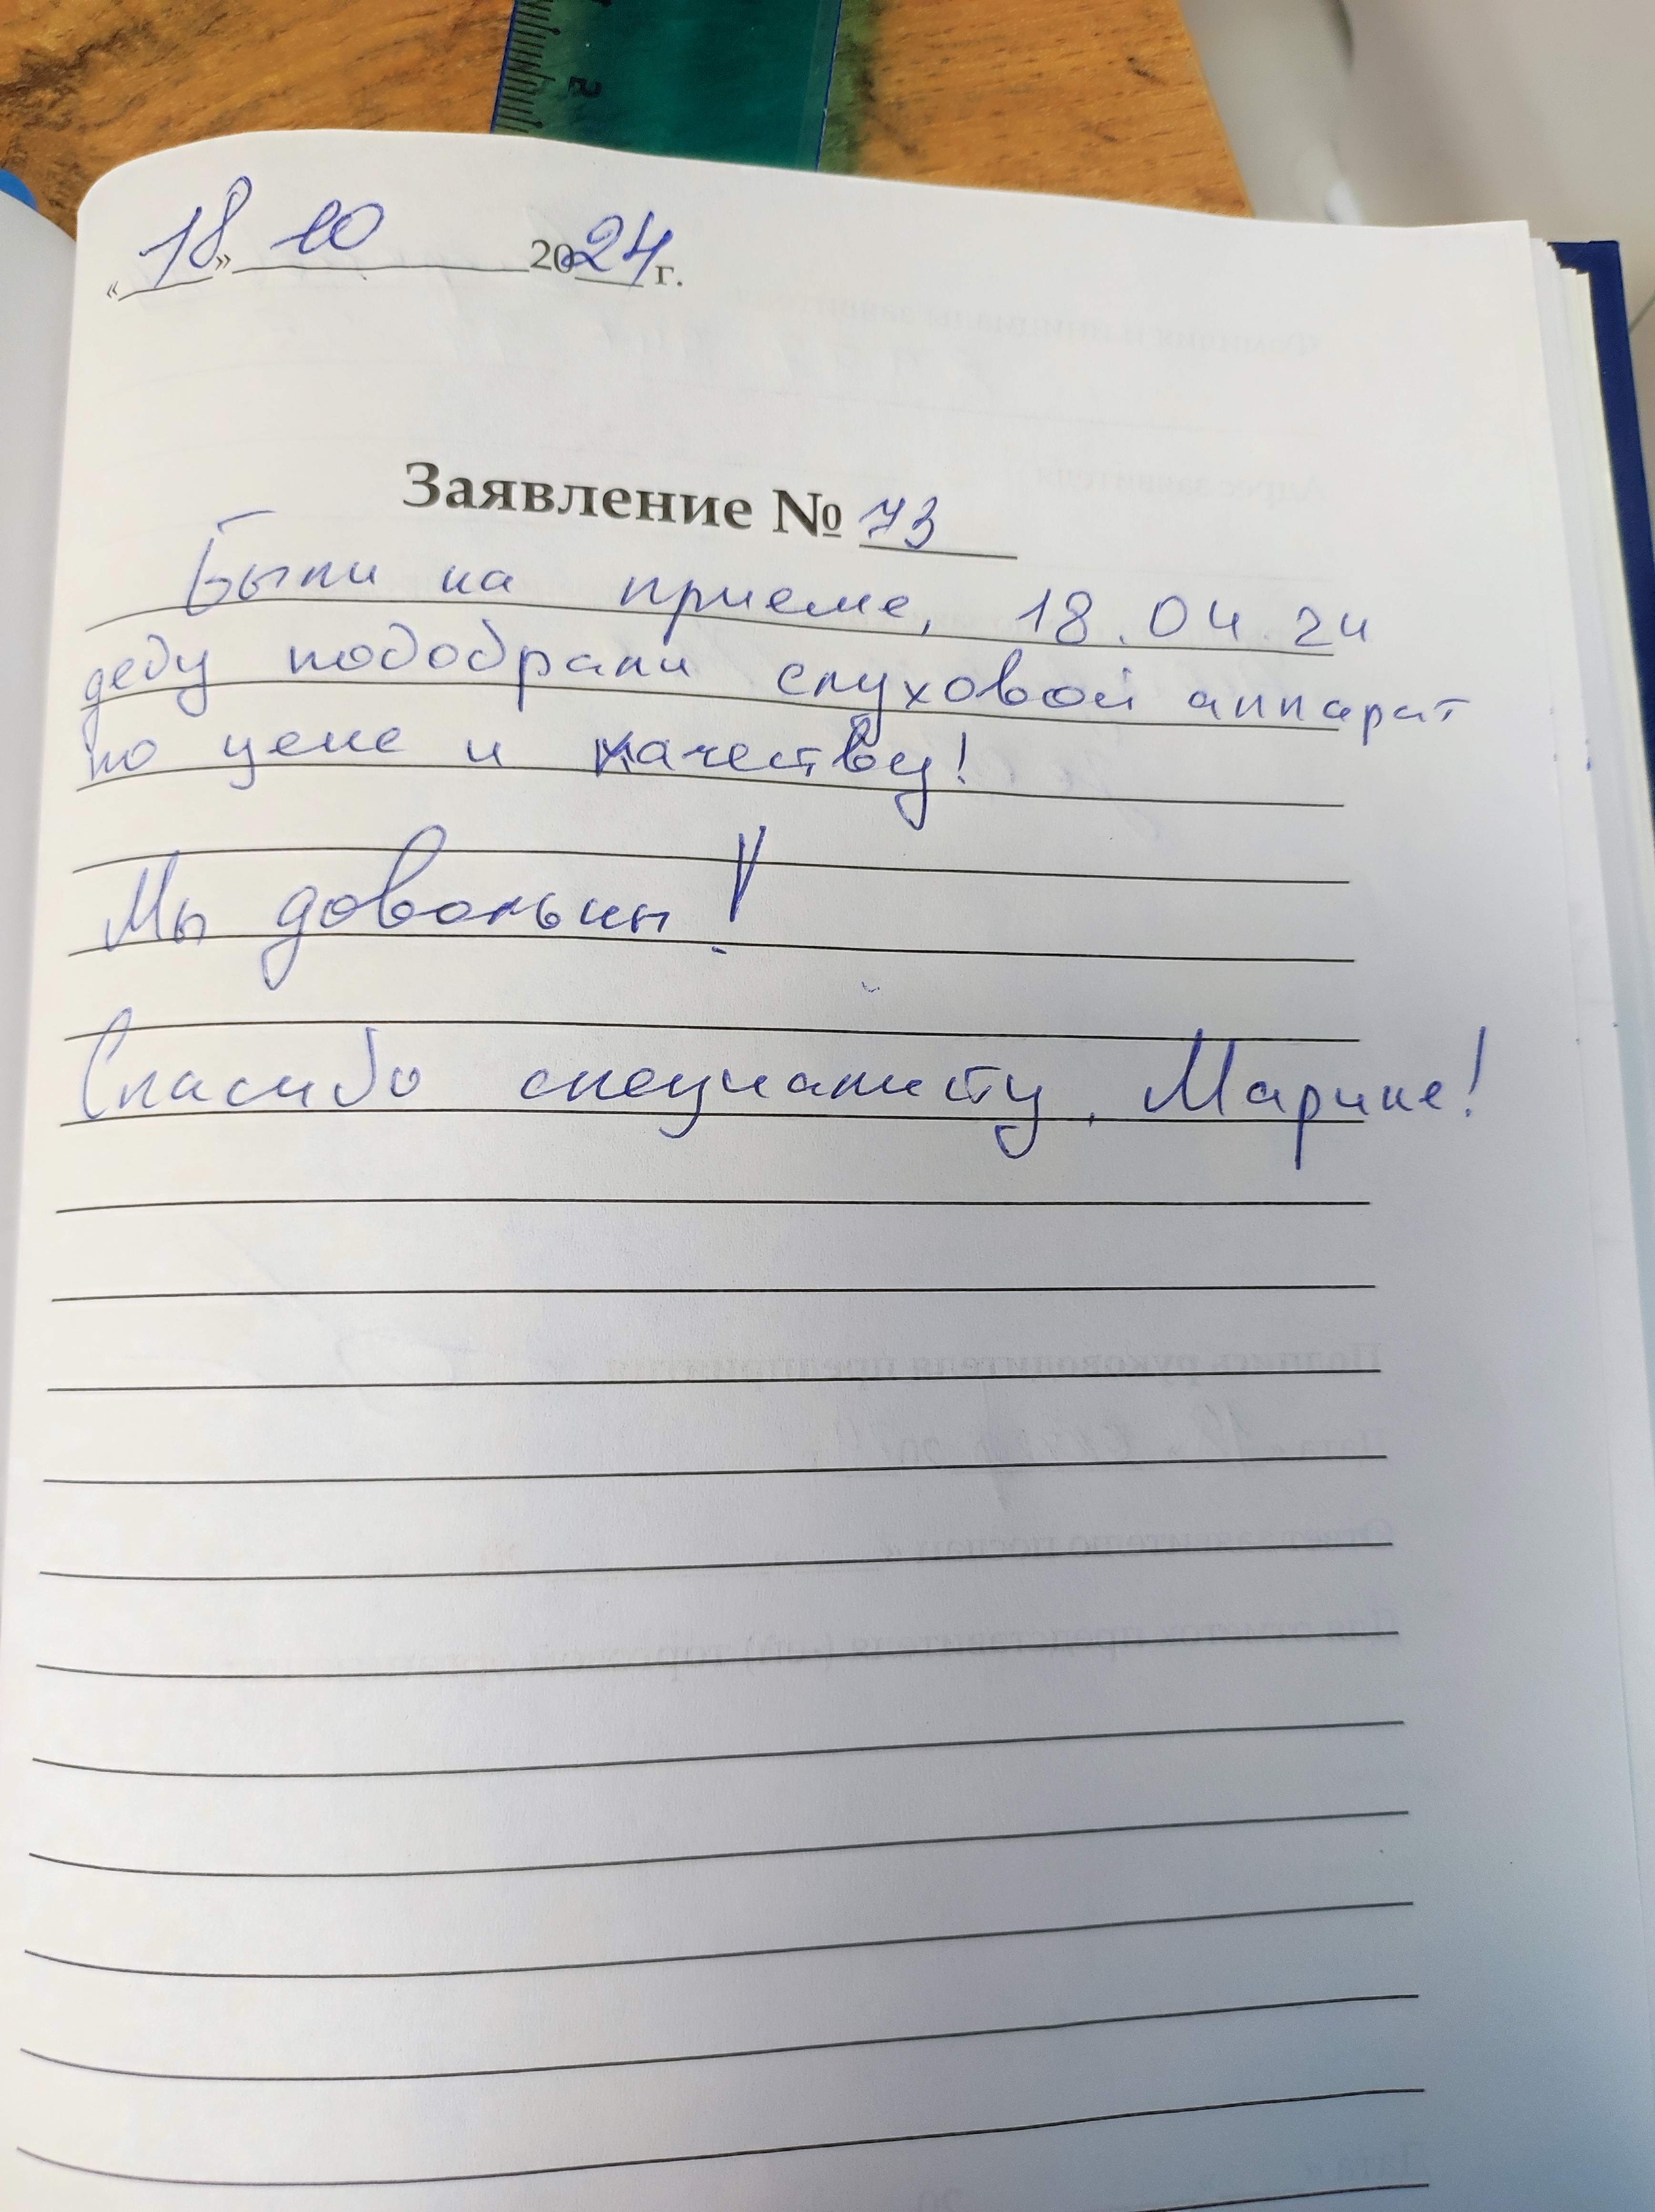 «18» 10 2024 г.
Заявление № 73
Были на приеме, 18.04.24
деду подобрали слуховой аппарат
по цене и качеству!
Мы довольны!
Спасибо специалисту, Марине!